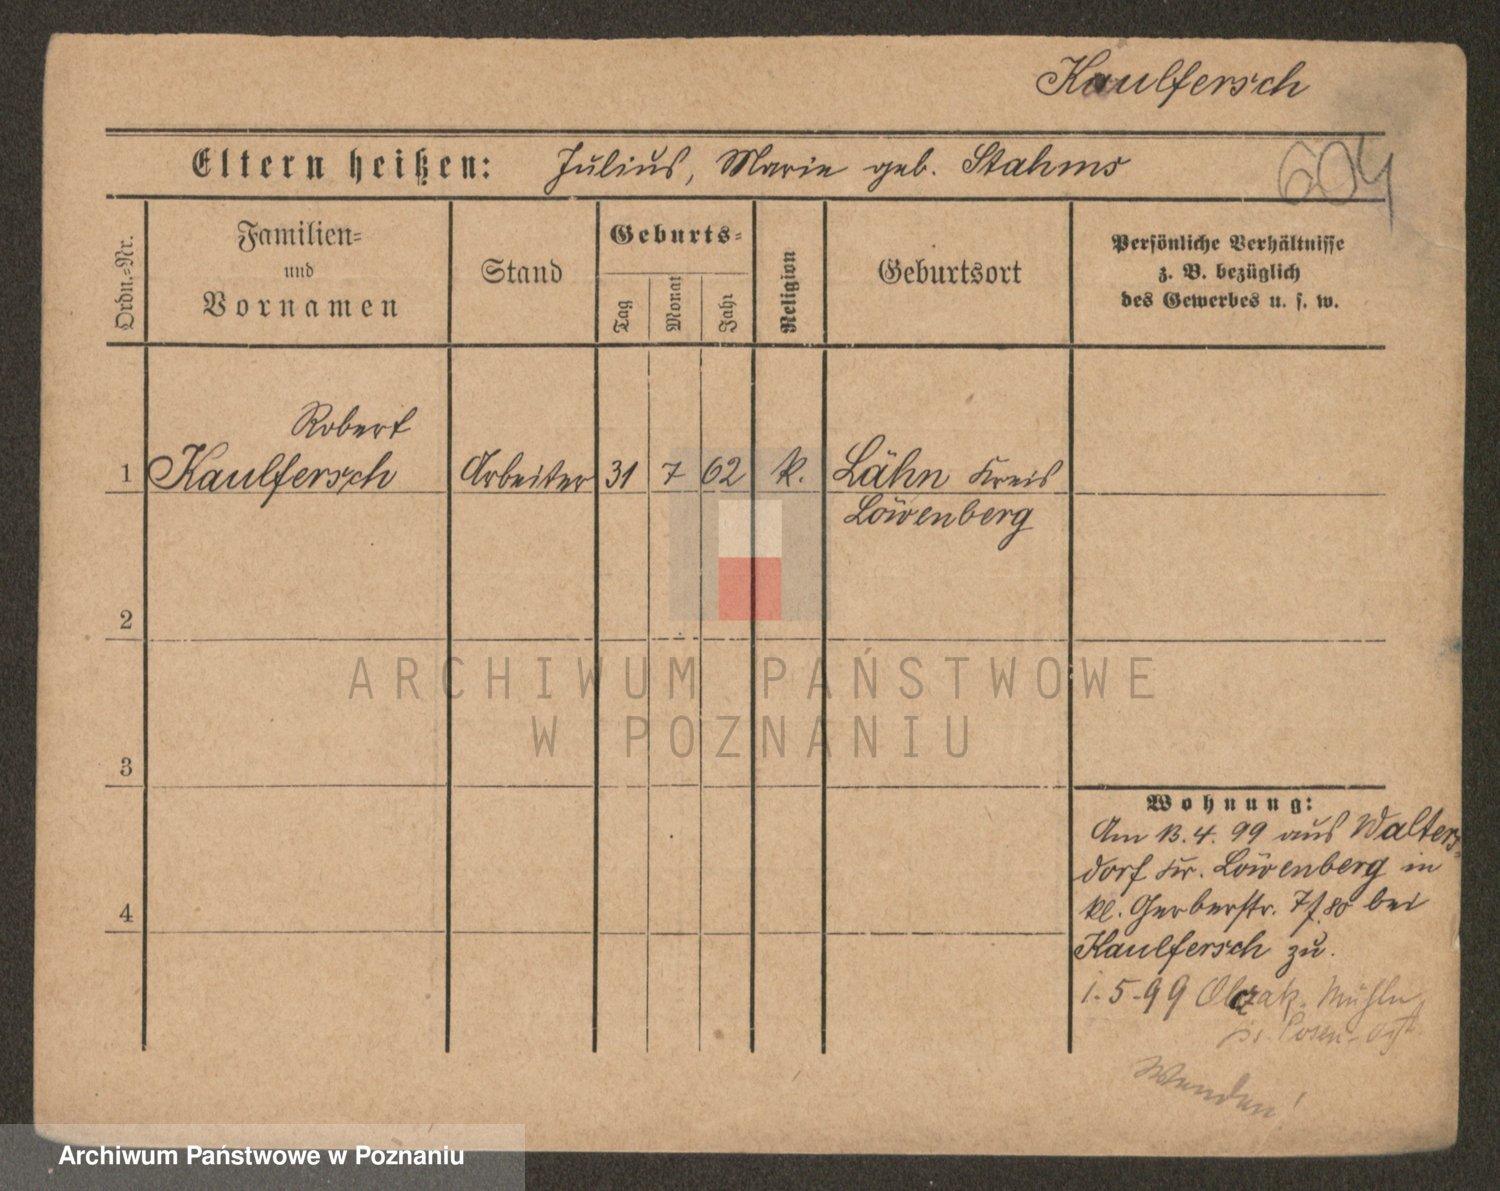 Kaulfersch
604
Eltern heißen: Julius, Marie geb. Stahms
Ordn.-Nr.
Familien-
und
Vornamen
Stand
Geburts-
Tag
Monat
Jahr
Religion
Geburtsort
Persönliche Verhältnisse
z. B. bezüglich
des Gewerbes u. s. w.
Robert
1 Kaulfersch Arbeiter 31 7 62 k. Lähn Kreis
Löwenberg
2
3
4
Wohnung:
Am 13.4.99 aus Walters-
dorf Kr. Löwenberg in
kl. Gerberstr. 7 bei
Kaulfersch zu.
1.5.99 Mühle
Posen
Wenden!
ARCHIWUM PAŃSTWOWE
W POZNANIU
Archiwum Państwowe w Poznaniu